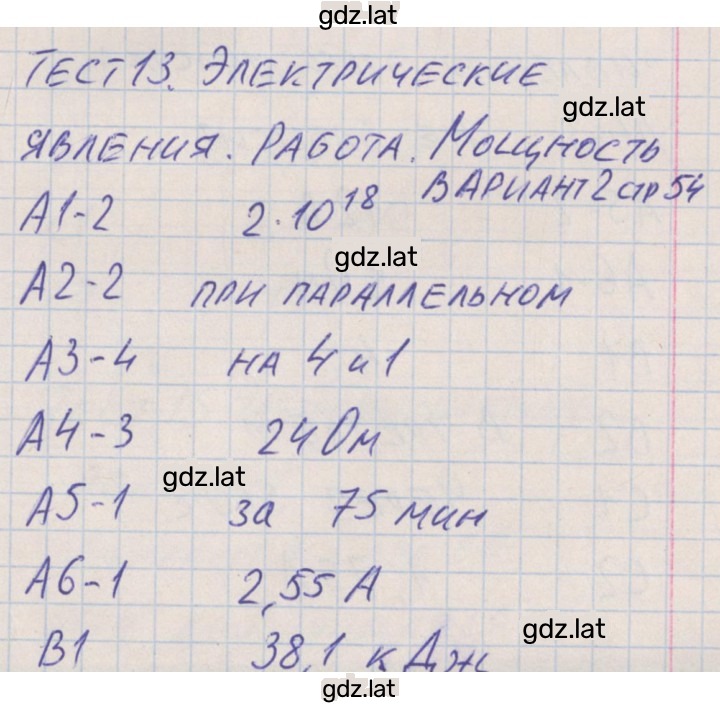 gdz.lat
ТЕСТ 13. ЭЛЕКТРИЧЕСКИЕ
gdz.lat
ЯВЛЕНИЯ. РАБОТА. МОЩНОСТЬ
ВАРИАНТ 2 стр 54
А1-2 2·10¹⁸
gdz.lat
А2-2 ПРИ ПАРАЛЛЕЛЬНОМ
А3-4 НА 4 и 1
А4-3 24 Ом
gdz.lat
А5-1 за 75 мин
А6-1 2,55 А
gdz.lat
В1 38,1 кДж
gdz.lat